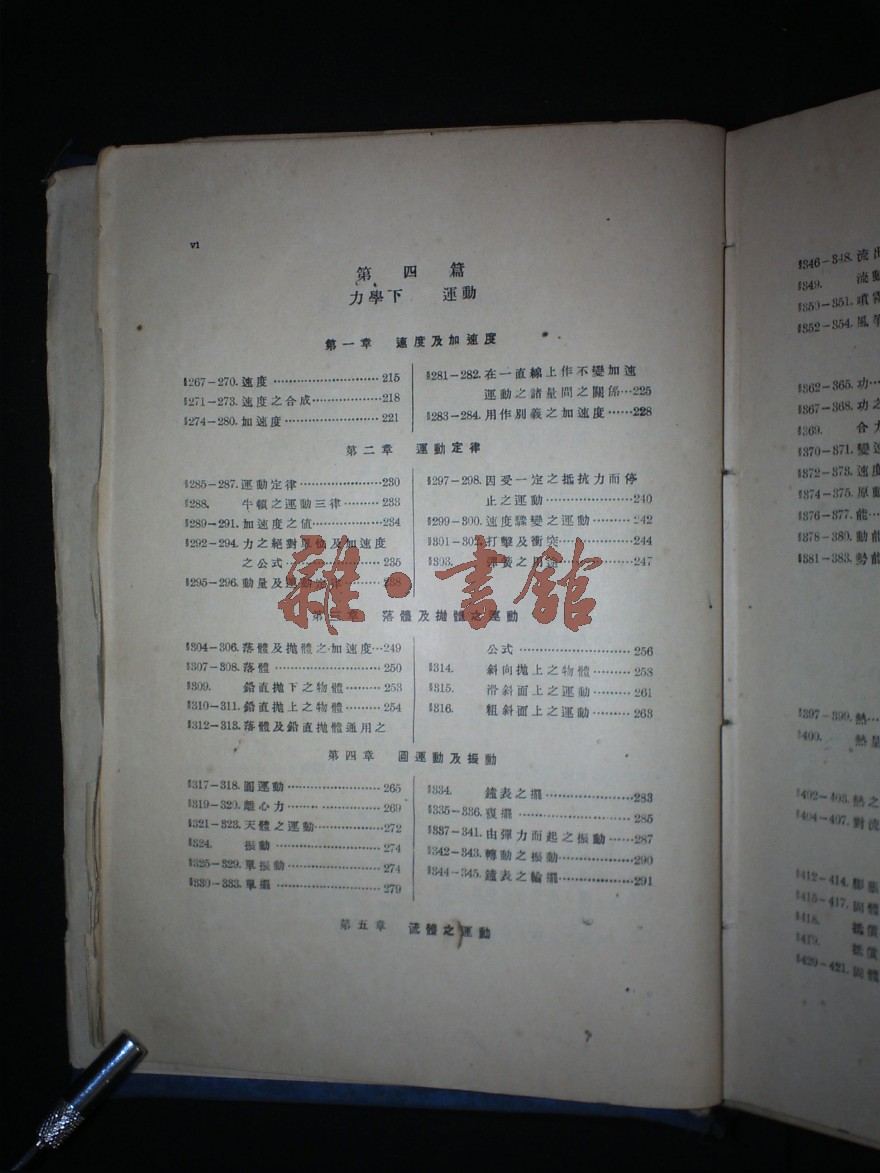 vi
第四篇
力學下 運動
第一章 速度及加速度
§267-270. 速度 215
§271-273. 速度之合成 218
§274-280. 加速度 221
§281-282. 在一直線上作不變加速
運動之諸量間之關係 225
§283-284. 用作別義之加速度 228
第二章 運動定律
§285-287. 運動定律 230
§288. 牛頓之運動三律 233
§289-291. 加速度之値 234
§292-294. 力之絕對單位及加速度
之公式 235
§295-296. 動量及運動定律 238
§297-298. 因受一定之抵抗力而停
止之運動 240
§299-300. 速度驟變之運動 242
§301-302. 打擊及衝突 244
§303. 彈簧之用途 247
第三章 落體及拋體之運動
§304-306. 落體及拋體之加速度 249
§307-308. 落體 250
§309. 鉛直拋下之物體 253
§310-311. 鉛直拋上之物體 254
§312-313. 落體及鉛直拋體通用之
公式 256
§314. 斜向拋上之物體 258
§315. 滑斜面上之運動 261
§316. 粗斜面上之運動 263
第四章 圓運動及振動
§317-318. 圓運動 265
§319-320. 離心力 269
§321-323. 天體之運動 272
§324. 振動 274
§325-329. 單振動 274
§330-333. 單擺 279
§334. 鐘表之擺 283
§335-336. 複擺 285
§337-341. 由彈力而起之振動 287
§342-343. 轉動之振動 290
§344-345. 鐘表之輪擺 291
第五章 流體之運動
雜·書館
§346-348. 流出
§349. 流動
§350-351. 噴霧
§352-354. 風
§362-365. 功
§367-368. 功之
§369. 合力
§370-371. 變速
§372-373. 速度
§374-375. 原動
§376-377. 能
§378-380. 動能
§381-383. 勢能
§397-399. 熱
§400. 熱量
§402-403. 熱之
§404-407. 對流
§412-414. 膨脹
§415-417. 固體
§418. 抵償
§419. 抵償
§420-421. 固體